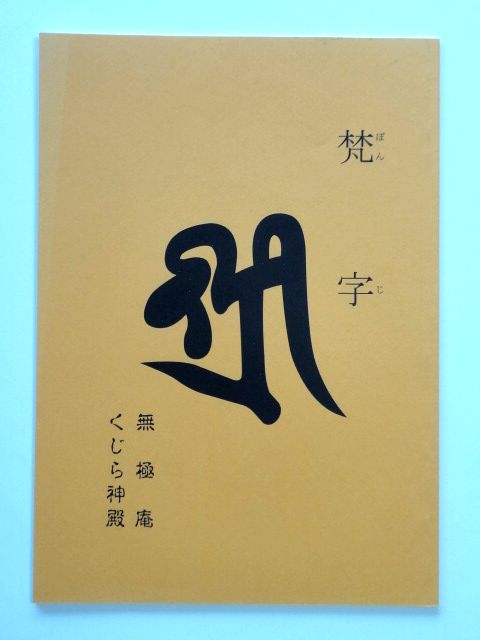 梵字
ぼんじ
無極庵
くじら神殿